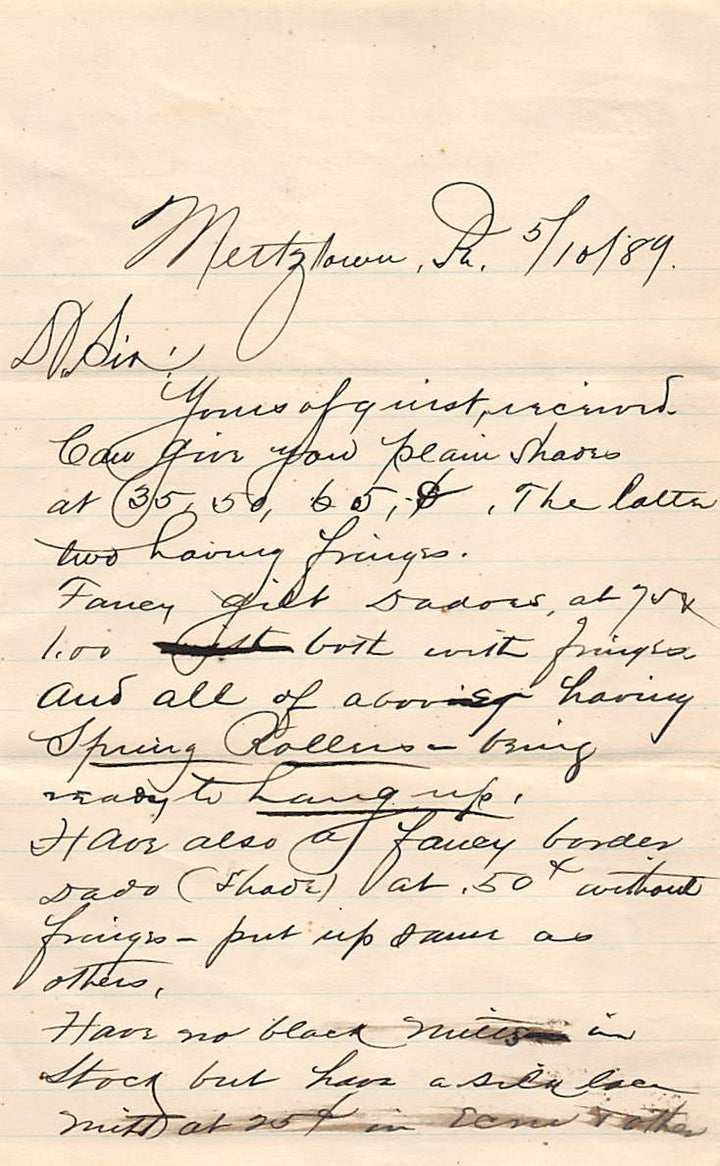 Mertztown, Pa. 5/10/89.
D. Sir:
Yours of 9 inst, received.
Can give you plain shades
at 35, 50, 65, . The latter
two having fringes.
Fancy gilt Dadoes, at 75 &
1.00 both with fringes
and all of above having
Spring Rollers - being
ready to hang up.
Have also a fancy border
Dado (Shade) at .50¢ without
fringes - put up same as
others.
Have no black mitts in
Stock but have a silk lace
mitt at 25¢ in Ecru & other